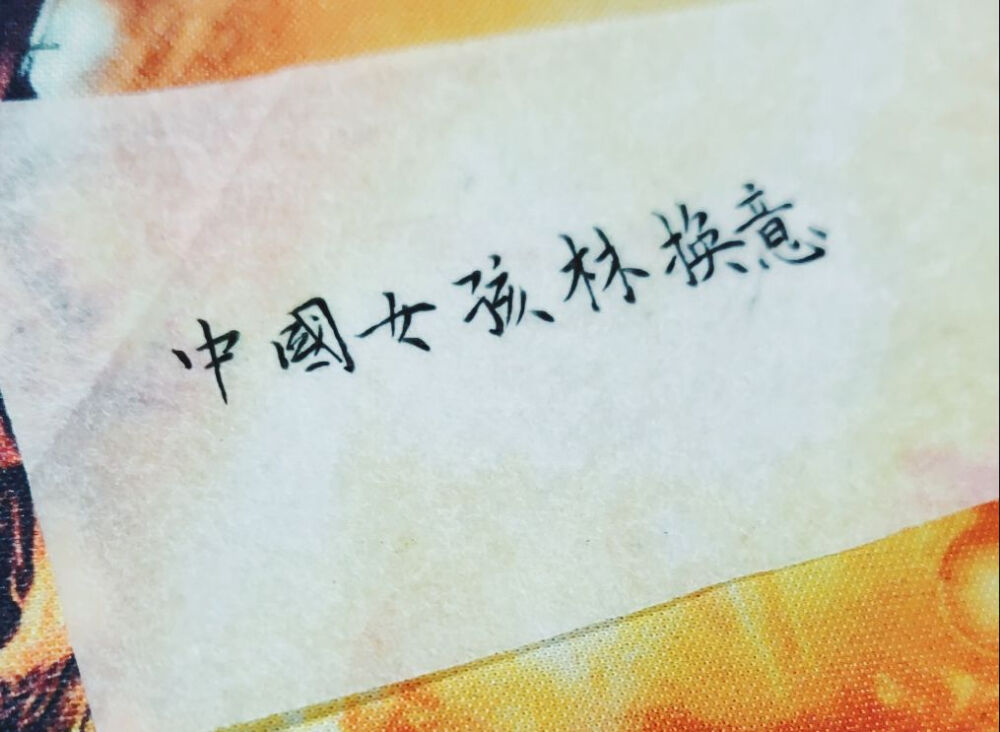 中國女孩林换意